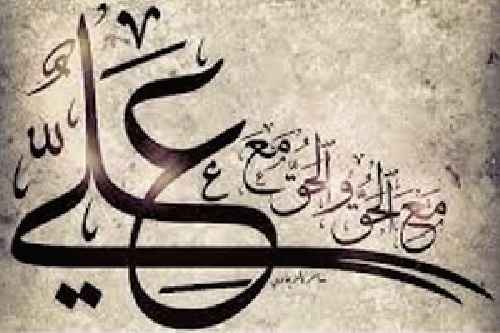 مَعَ الحَقِّ وَالحَقُّ مَعَ عَلِيٍّ